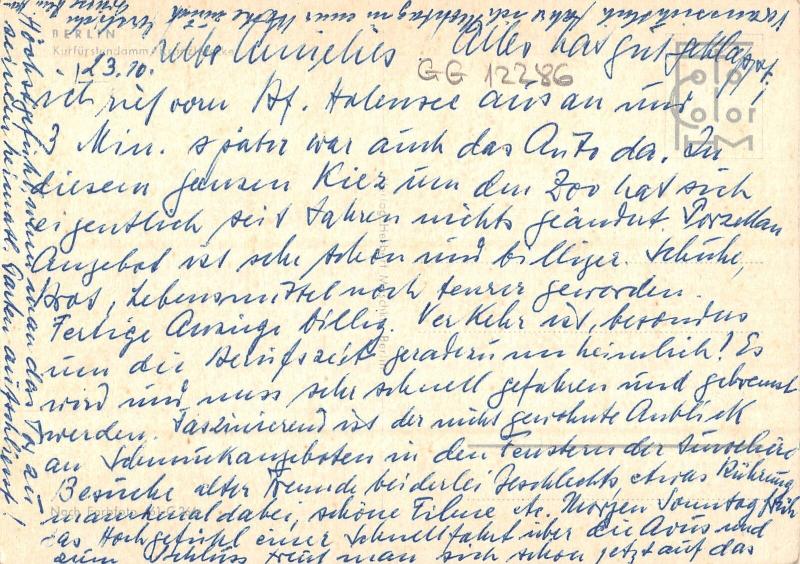 BERLIN
Kurfürstendamm
Alles hat gut geklappt!
GG 12286
Ich rief vom Bf. Halensee aus an und
3 Min. später war auch das Auto da. In
diesem ganzen Kiez um den Zoo hat sich
eigentlich seit Jahren nichts geändert. Porzellan
Angebot ist sehr schön und billiger. Schuhe,
Brot, Lebensmittel noch teurer geworden.
Fertige Anzüge billig. Verkehr ist, besonders
um die Berufszeit geradezu unheimlich! Es
wird und muss sehr schnell gefahren und gebremst
werden. Faszinierend ist der nicht gewohnte Anblick
an Schmuckangeboten in den Fenstern der Juweliere
Besuche alter Freunde beiderlei Geschlechts etwas Rührung
manchmal dabei, schöne Filme etc. Morgen Sonntag früh
das Hochgefühl einer Schnellfahrt über die Avus und
zum Schluss freut man sich schon jetzt auf das
Hochgefühl, wenn man das Tor zu
seinem Heimatl. Garten aufschliesst!
Voraussichtlich fahre ich
Color
HM